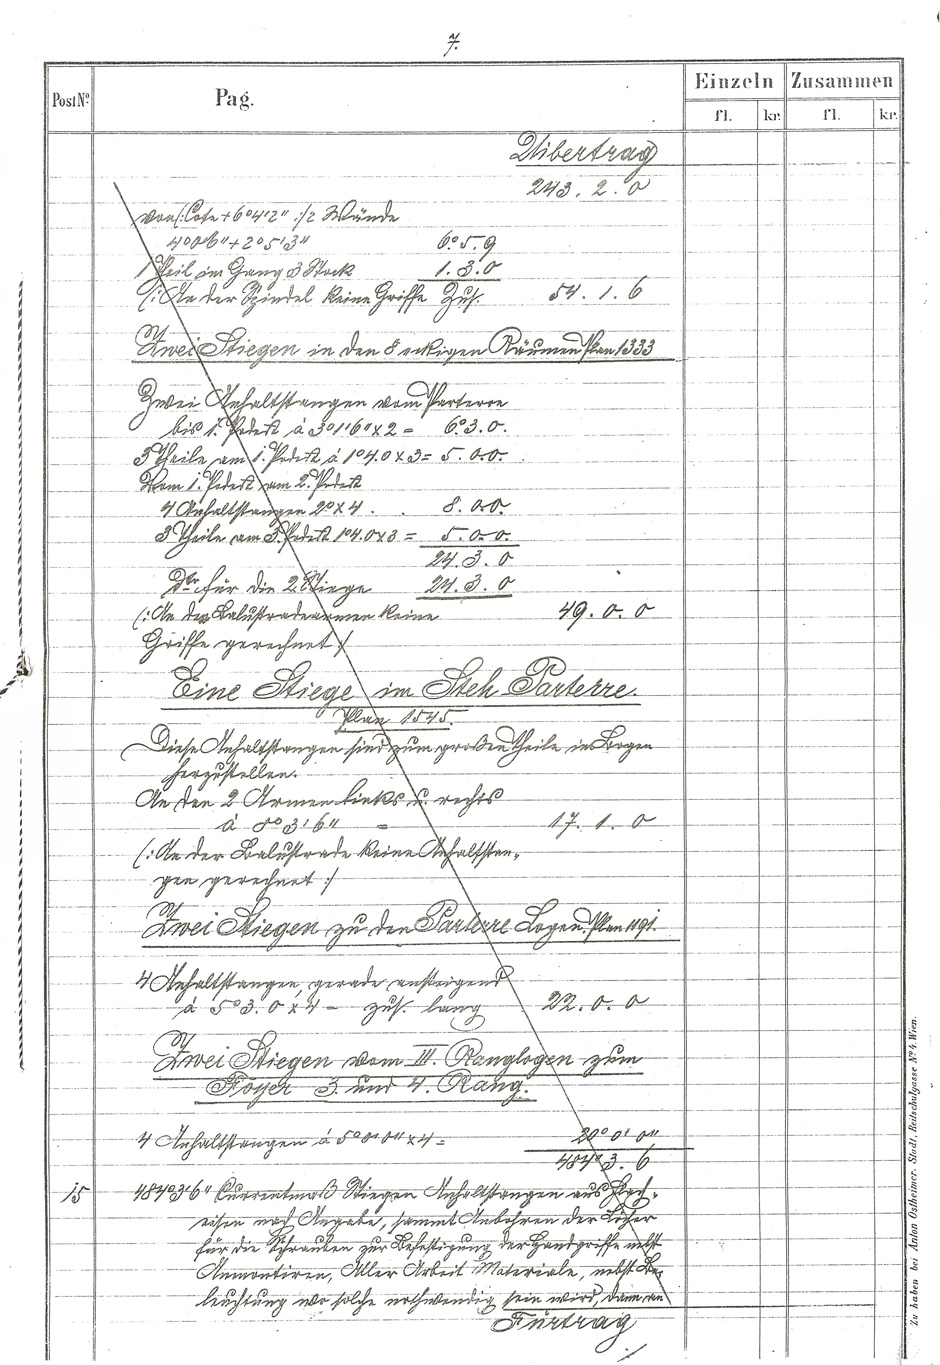 7.
Post No. Pag. Einzeln Zusammen
fl. kr. fl. kr.
Uibertrag
243. 2. 0
von (: Cote + 6°4'2" :/2 Wände
4°0'6" + 2°5'3" 6°.5.9
1 Theil im Gang 3 Stock 1.3.0
(: An der Spindel keine Griffe Zus. 54. 1. 6
Zwei Stiegen in den 8 eckigen Räumen Plan 1333
Zwei Anhaltstangen vom Parterre
bis 1. Podest à 3°1'6" x 2 = 6°.3.0.
3 Theile am 1. Podest à 1°4.0 x 3 = 5.0.0.
Vom 1. Podest am 2. Podest
4 Anhaltstangen 2° x 4 . . 8.0.0.
3 Theile am 3. Podest 1°4.0 x 3 = 5.0.0.
24.3.0
für die 2. Stiege 24.3.0
(: An den Balustradearmen keine 49. 0. 0
Griffe gerechnet :/
Eine Stiege im Steh Parterre.
Plan 1545.
Diese Anhaltstangen sind zum großen Theile im Bogen
herzustellen.
An den 2 Armen links u. rechts
à 8°3'6" = 17. 1. 0
(: An der Balustrade keine Anhaltstan-
gen gerechnet :/
Zwei Stiegen zu den Parterre Logen. Plan 1191.
4 Anhaltstangen, gerade ansteigend
à 5°3.0 x 4 = zus. lang 22. 0. 0
Zwei Stiegen vom III. Ranglogen zum
Foyer 3. und 4. Rang.
4 Anhaltstangen à 5°0'0" x 4 = 20°0'0"
484°3.6
15 484°3'6" Currentmaß Stiegen Anhaltstangen aus Flach-
eisen nach Angabe, sammt Anbohren der Löcher
für die Schrauben zur Befestigung der Handgriffe nebst
Anmontiren, Aller Arbeit Materiale, nebst Be-
leuchtung wo solche nothwendig sein wird, dann an
Fürtrag
Zu haben bei Anton Ostheimer, Stadt, Reitschulgasse No. 4. Wien.